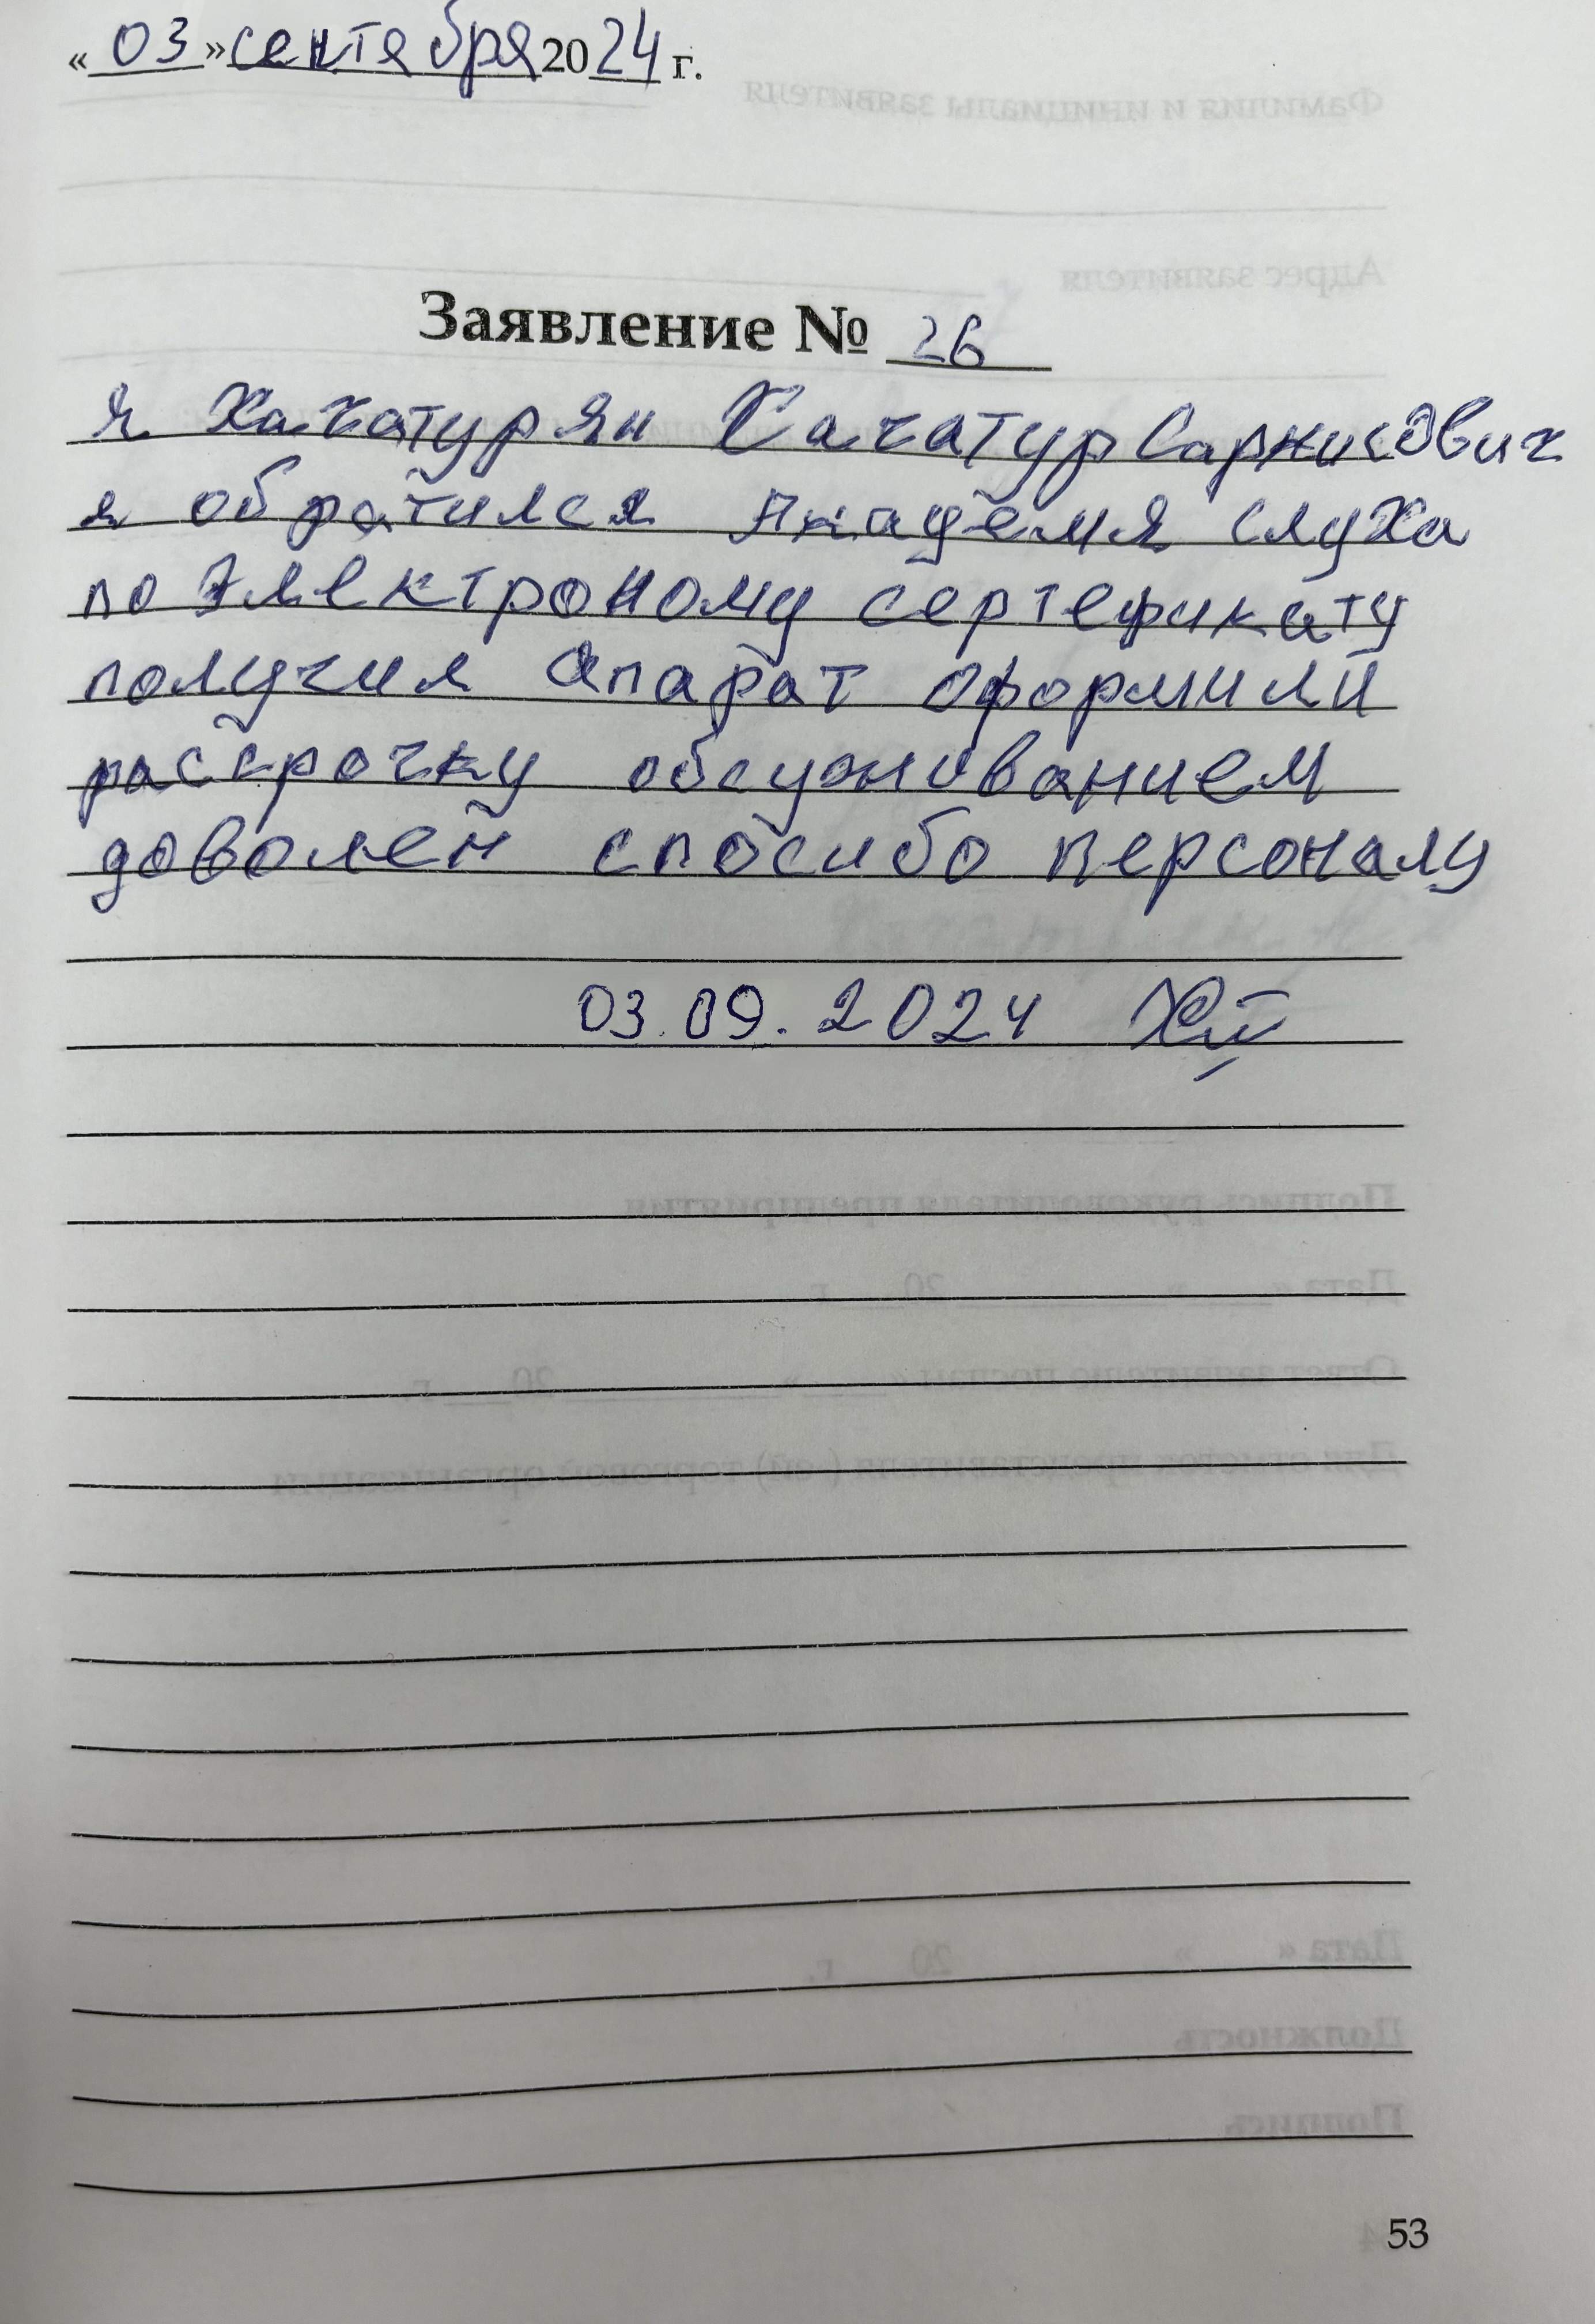 «03» сентября 2024 г.
Заявление № 26
я Хачатурян Хачатур Саркисович
я обратился Академя слуха
по Электроному сертефикату
получил Апарат оформили
рассрочку обсуживанием
доволен спосибо персоналу
03.09.2024
53